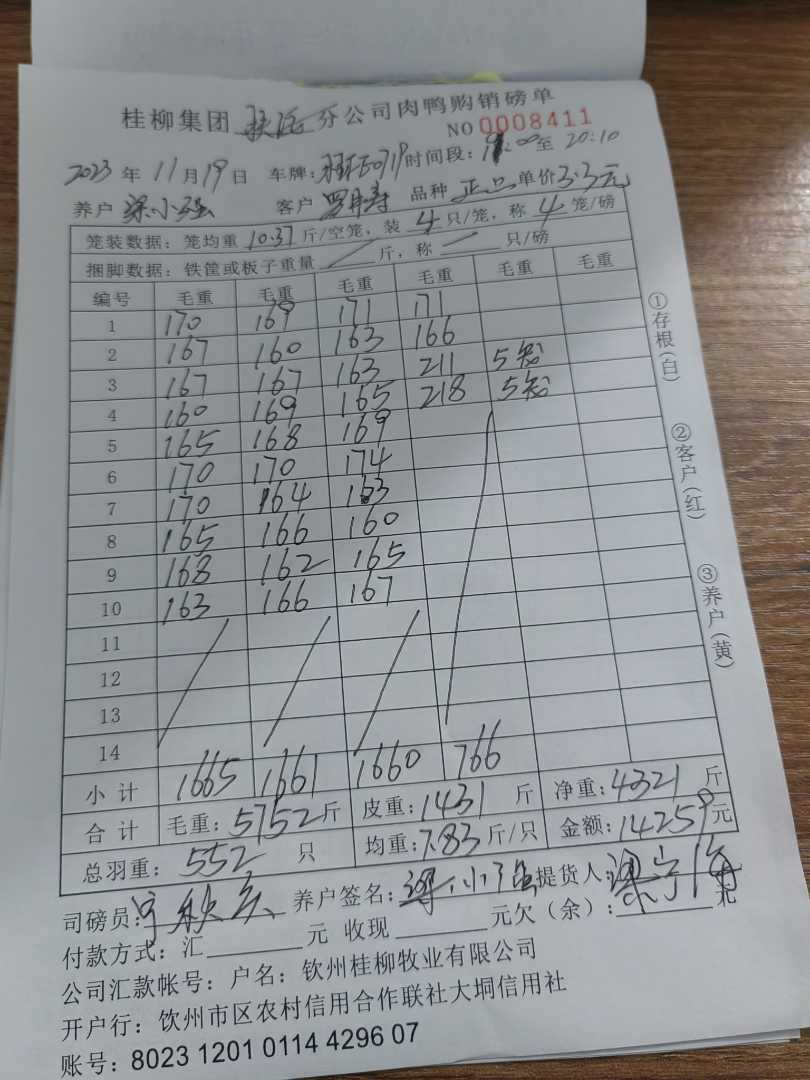 桂柳集团 分公司肉鸭购销磅单
NO 0008411
2023 年 11 月 19 日 车牌: 时间段: 至 20:10
养户 梁小强 客户 罗月寿 品种 正品 单价 3.3元
笼装数据: 笼均重 10.37 斤/空笼, 装 4 只/笼, 称 4 笼/磅
捆脚数据: 铁筐或板子重量 斤, 称 只/磅
编号 毛重 毛重 毛重 毛重 毛重 毛重
1 170 169 171 171
2 167 160 163 166
3 167 167 163 211 5笼
4 160 169 165 218 5笼
5 165 168 169
6 170 170 174
7 170 164 163
8 165 166 160
9 168 162 165
10 163 166 167
11
12
13
14
小计 1665 1661 1660 766
合计 毛重: 5752 斤 皮重: 1431 斤 净重: 4321 斤
总羽重: 552 只 均重: 7.83 斤/只 金额: 14259 元
司磅员: 养户签名: 梁小强 提货人:
付款方式: 汇 元 收现 元欠(余): 元
公司汇款帐号: 户名: 钦州桂柳牧业有限公司
开户行: 饮州市区农村信用合作联社大垌信用社
账号: 8023 1201 0114 4296 07
①存根(白)
②客户(红)
③养户(黄)